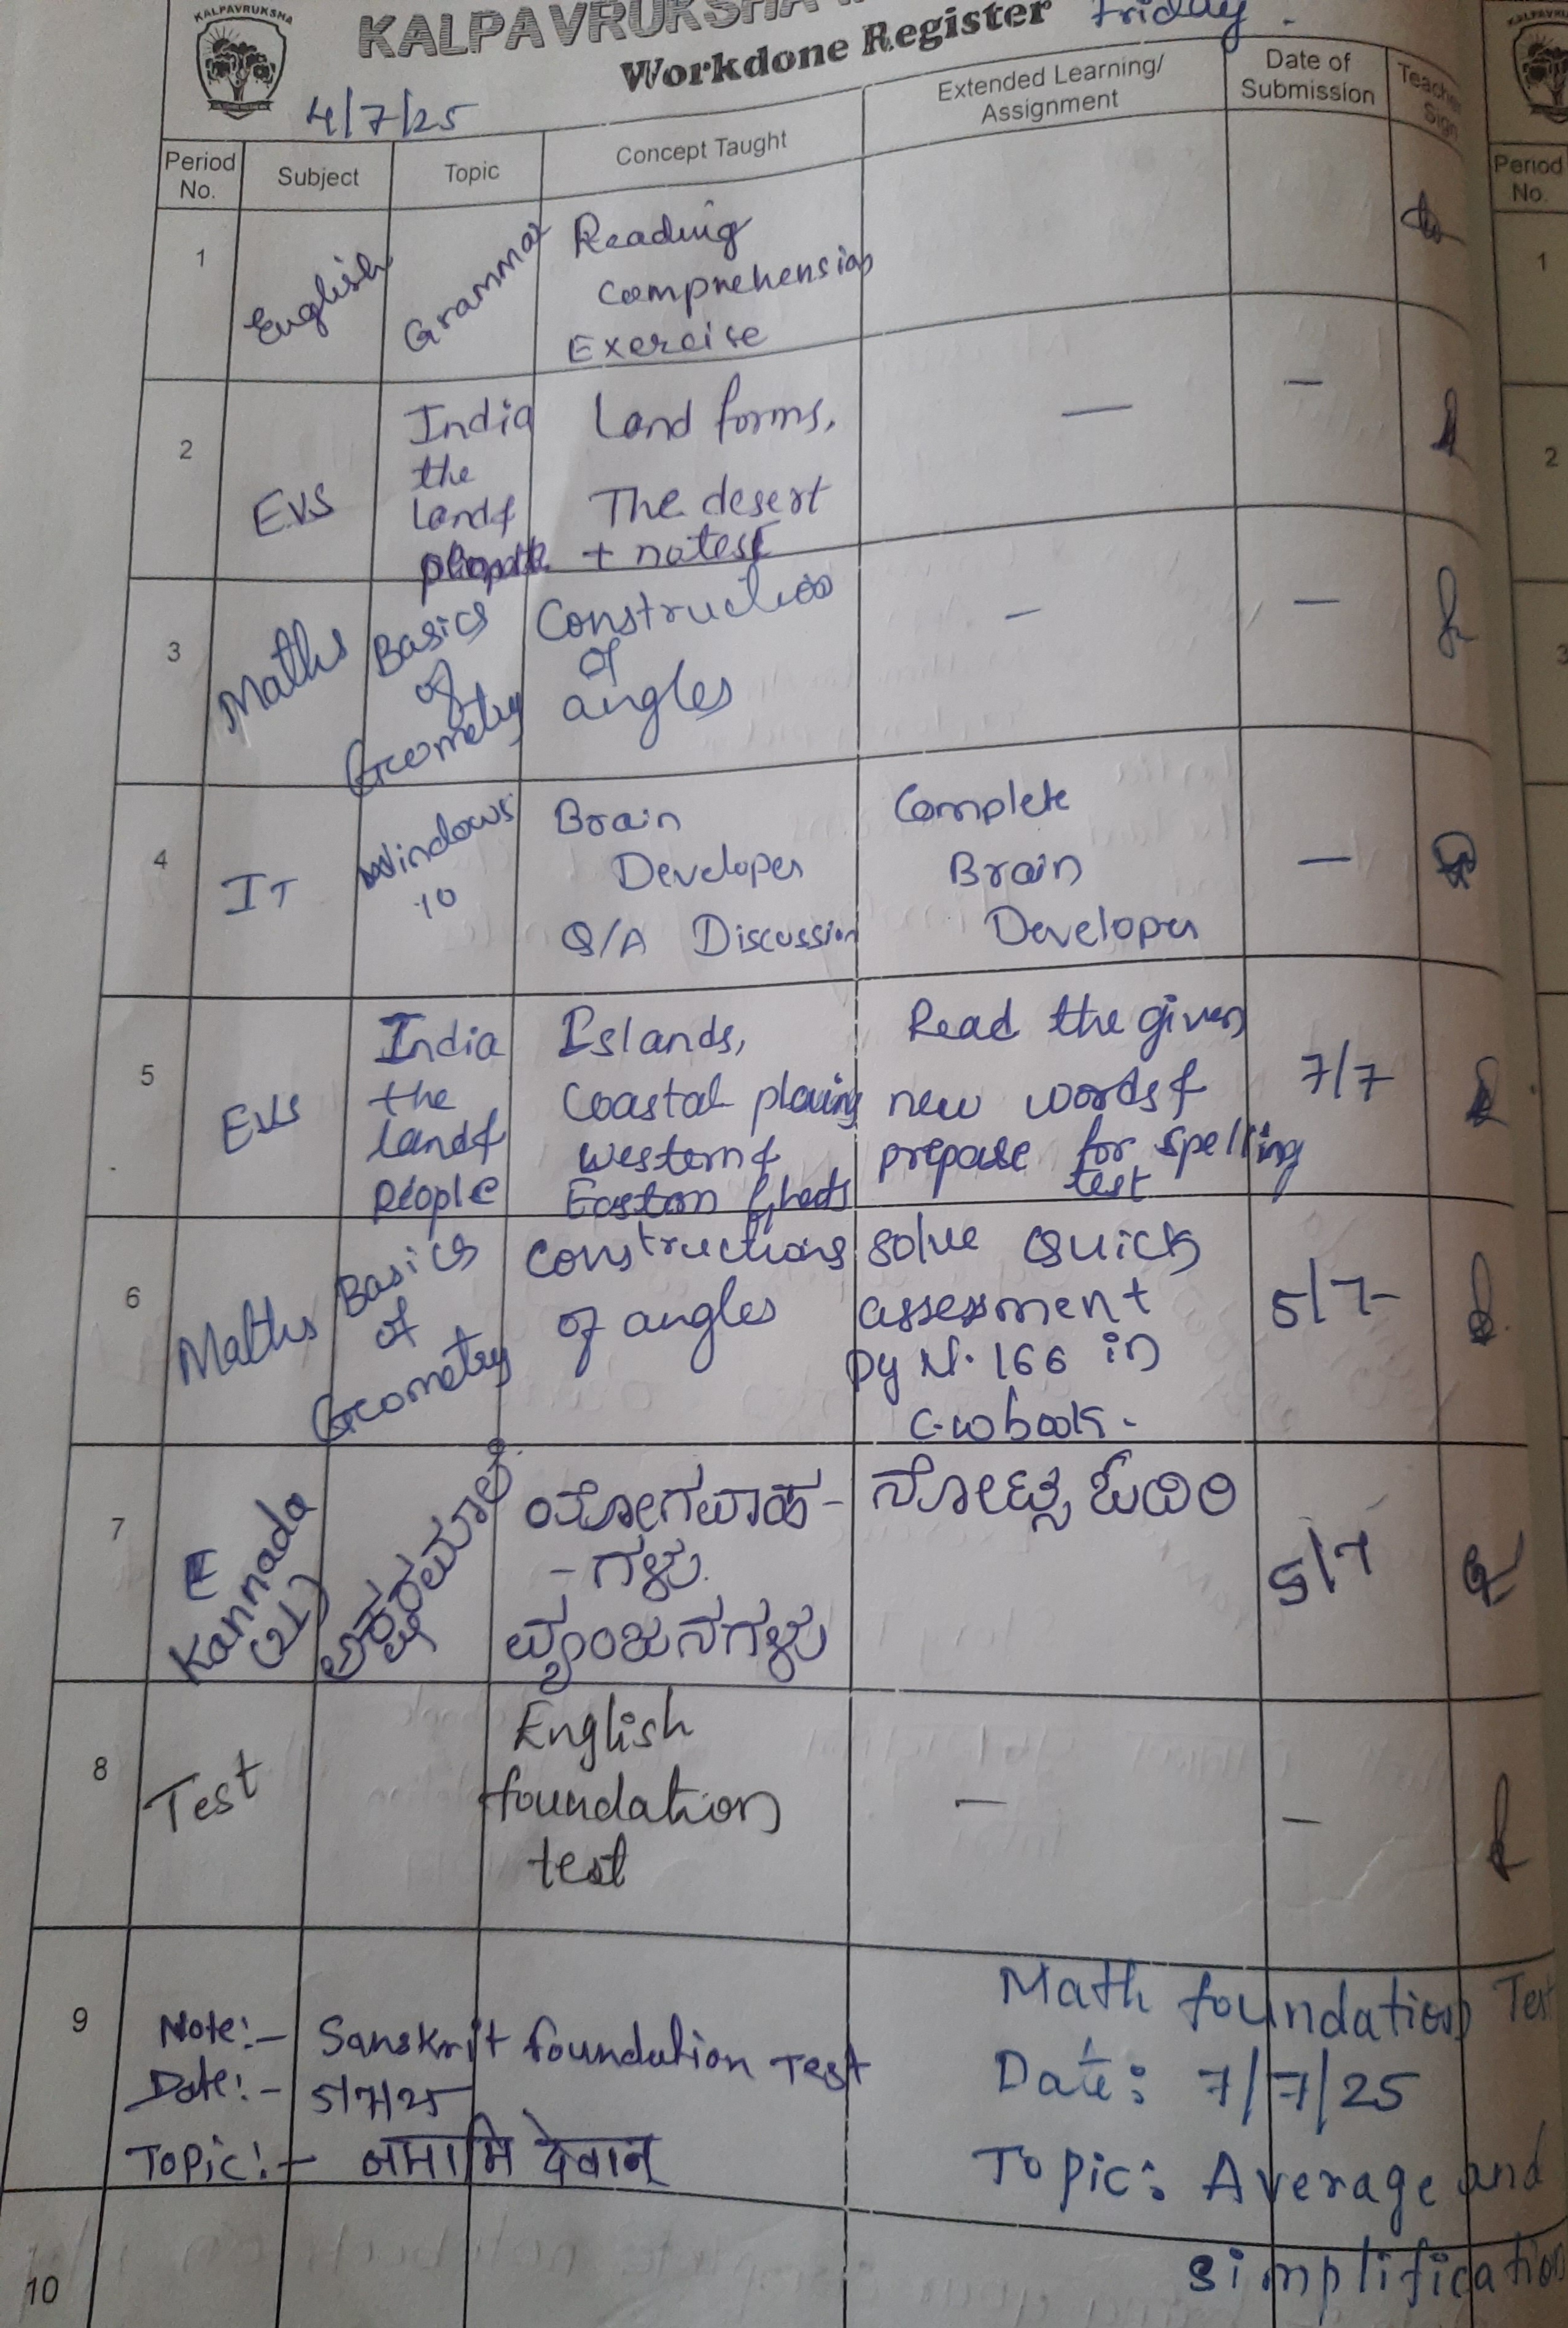 KALPAVRUKSHA
KALPAVRUKSHA
Workdone Register Friday.
4/7/25
Period No. Subject Topic Concept Taught Extended Learning/ Assignment Date of Submission Teacher Sign
1 English Grammar Reading
Comprehension
Exercise
2 EVS India Land forms, — —
the
land & The desert
people + notes
3 Maths Basics Construction – —
of of
Geometry angles
4 IT Windows Brain Complete —
10 Developer Brain
Q/A Discussion Developer
5 EVS India Islands, Read the given 7/7
the Coastal plains new words &
land & Western & prepare for spelling
People Eastern Ghats test
6 Maths Basics Constructions solve Quick 5/7-
of of angles assessment
Geometry pg N. 166 in
C.W book.
7 Kannada (2L) ಅಕ್ಷರಮಾಲೆ ಯೋಗವಾಹ- ನೋಟ್ಸ್ ಓದಿರಿ 5/7
-ಗಳು.
ವ್ಯಂಜನಗಳು
8 Test English — —
foundation
test
9 Note:- Sanskrit foundation Test
Date:- 5/7/25
Topic:- नमामि देवान्
Math foundation Test
Date: 7/7/25
Topic: Average and
simplification
10
Period
No.
1
2
3